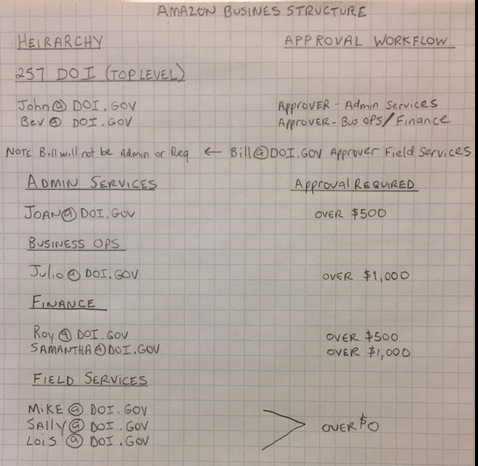 AMAZON BUSINES STRUCTURE
HEIRARCHY APPROVAL WORKFLOW
257 DOI (TOP LEVEL)
John@ DOI.GOV APPROVER - Admin Services
Bev@ DOI.GOV APPROVER - Bus OPS/Finance
NOTE Bill will not be Admin or Req ← Bill@DOI.GOV Approver Field Services
ADMIN SERVICES Approval REQUIRED
JOAN@DOI.GOV OVER $500
BUSINESS OPS
Julio@DOI.GOV OVER $1,000
FINANCE
Roy@ DOI.GOV OVER $500
SAMANTHA@DOI.GOV OVER $1,000
FIELD SERVICES
MIKE@ DOI.GOV
SAlly@ DOI.GOV OVER $0
LOIS @ DOI.GOV